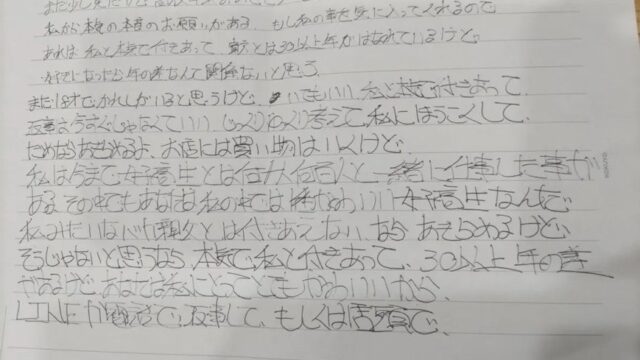 私から本気の本音のお願いがある、もし私の事を気に入ってくれるので
あれば 私と本気で付きあって 貴女とは30以上年がはなれているけど。
好きになったら年の差なんて関係ないと思う
まだ18才でかれしがいると思うけど、いてもいい 私と本気で付きあって
返事は今すぐじゃなくていい じっくりゆっくり考えて 私にほうこくして
だめならあきらめるよ、お店には買い物はいくけど
私は今まで女子高生とは何十何百人と一緒に仕事した事が
ある その中でもあなたは私の中では1番かわいい女子高生なんだ
私みたいなバカ親父とは付きあえない なら あきらめるけど
そうじゃないと思うなら 本気で私と付きあって、30以上年の差
があるけど あなたは私にとってとてもかわいいから、
LINEか電話で、返事して、もしくは店頭で、